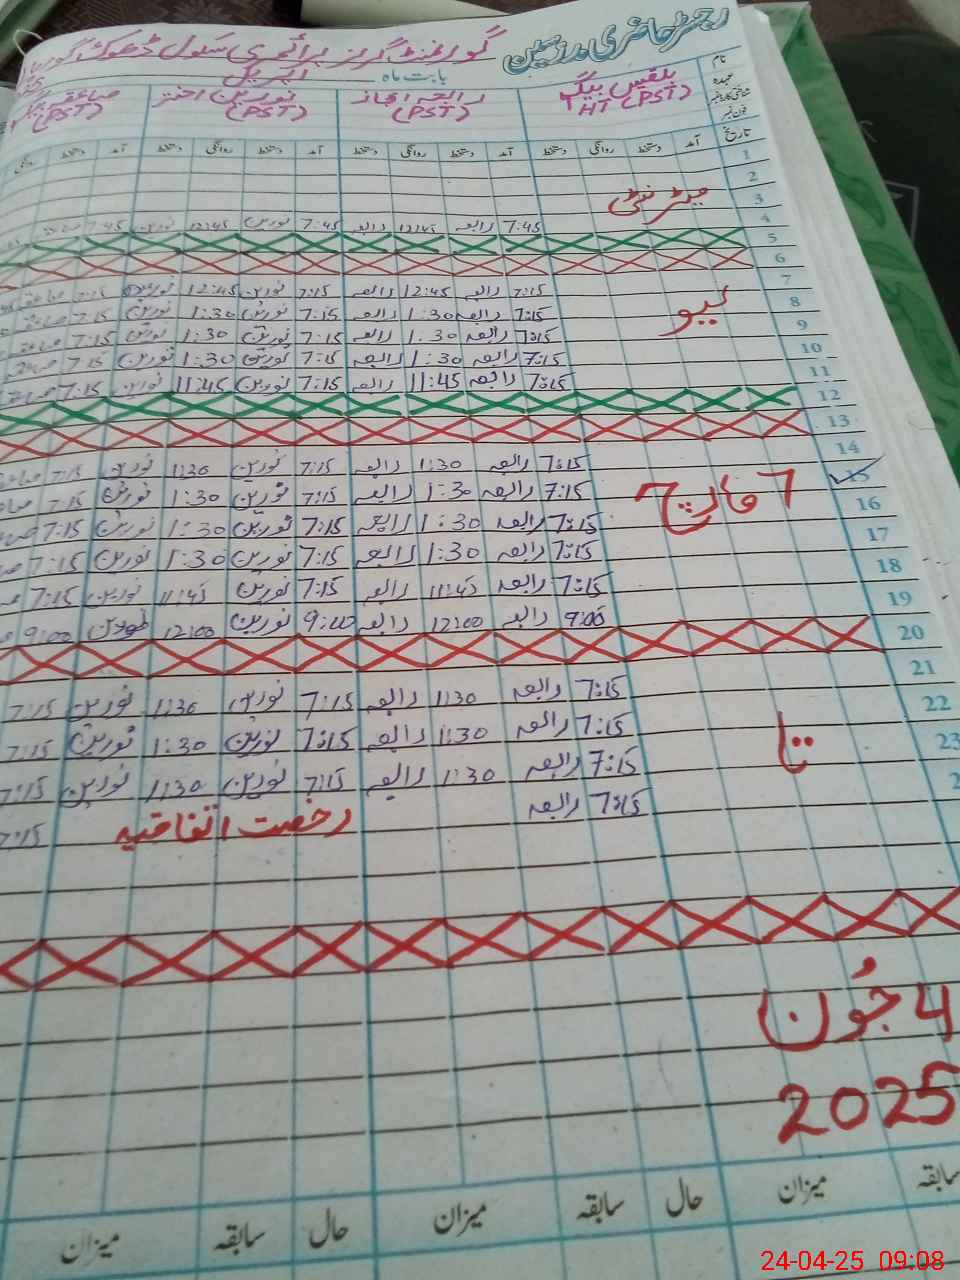 رجسٹر حاضری مدرسین
گورنمنٹ گرلز پرائمری سکول ڈھوک
بابت ماہ اپریل
نام
عہدہ
شناختی کارڈ نمبر
فون نمبر
بلقیس بیگم
HT (PST)
رابعہ اعجاز
(PST)
نورین اختر
(PST)
(PST)
تاریخ آمد دستخط روانگی دستخط آمد دستخط روانگی دستخط آمد دستخط روانگی دستخط آمد دستخط روانگی
1
2
3
میٹرنٹی
4 7:45 رابعہ 12:45 رابعہ 7:45 نورین 12:45 نورین 7:45
5
6
7 7:15 رابعہ 12:45 رابعہ 7:15 نورین 12:45 نورین 7:15
8 لیو 7:15 رابعہ 1:30 رابعہ 7:15 نورین 1:30 نورین 7:15
9 7:15 رابعہ 1:30 رابعہ 7:15 نورین 1:30 نورین 7:15
10 7:15 رابعہ 1:30 رابعہ 7:15 نورین 1:30 نورین 7:15
11 7:15 رابعہ 11:45 رابعہ 7:15 نورین 11:45 نورین 7:15
12
13
14 7:15 رابعہ 1:30 رابعہ 7:15 نورین 1:30 نورین 7:15
15 7 مارچ 7:15 رابعہ 1:30 رابعہ 7:15 نورین 1:30 نورین 7:15
16 7:15 رابعہ 1:30 رابعہ 7:15 نورین 1:30 نورین 7:15
17 7:15 رابعہ 1:30 رابعہ 7:15 نورین 1:30 نورین 7:15
18 7:15 رابعہ 11:45 رابعہ 7:15 نورین 11:45 نورین 7:15
19 9:00 رابعہ 12:00 رابعہ 9:00 نورین 12:00 نورین 9:00
20
21 7:15 رابعہ 1:30 رابعہ 7:15 نورین 1:30 نورین 7:15
22 تا 7:15 رابعہ 1:30 رابعہ 7:15 نورین 1:30 نورین 7:15
23 7:15 رابعہ 1:30 رابعہ 7:15 نورین 1:30 نورین 7:15
7:15 رابعہ رخصت اتفاقیہ 7:15
4 جُون
2025
سابقہ میزان حال سابقہ میزان حال سابقہ میزان
24-04-25 09:08